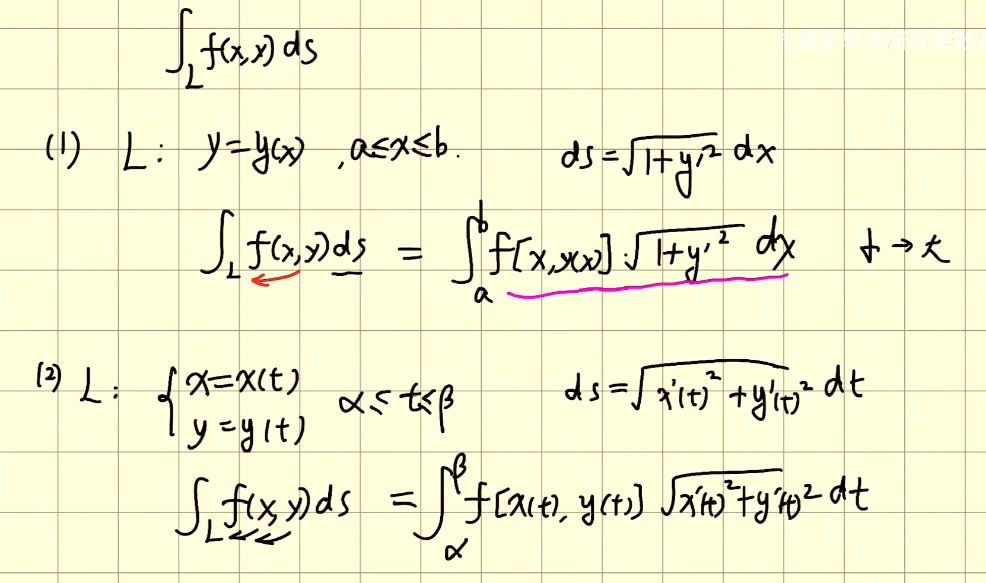 ∫_L f(x,y) ds
(1) L: y=y(x), a≤x≤b. ds=√(1+y'²) dx
∫_L f(x,y) ds = ∫_a^b f[x,y(x)]·√(1+y'²) dx 小→大
(2) L: { x=x(t) y=y(t) α≤t≤β ds=√(x'(t)²+y'(t)²) dt
∫_L f(x,y) ds = ∫_α^β f[x(t), y(t)] √(x'(t)²+y'(t)²) dt